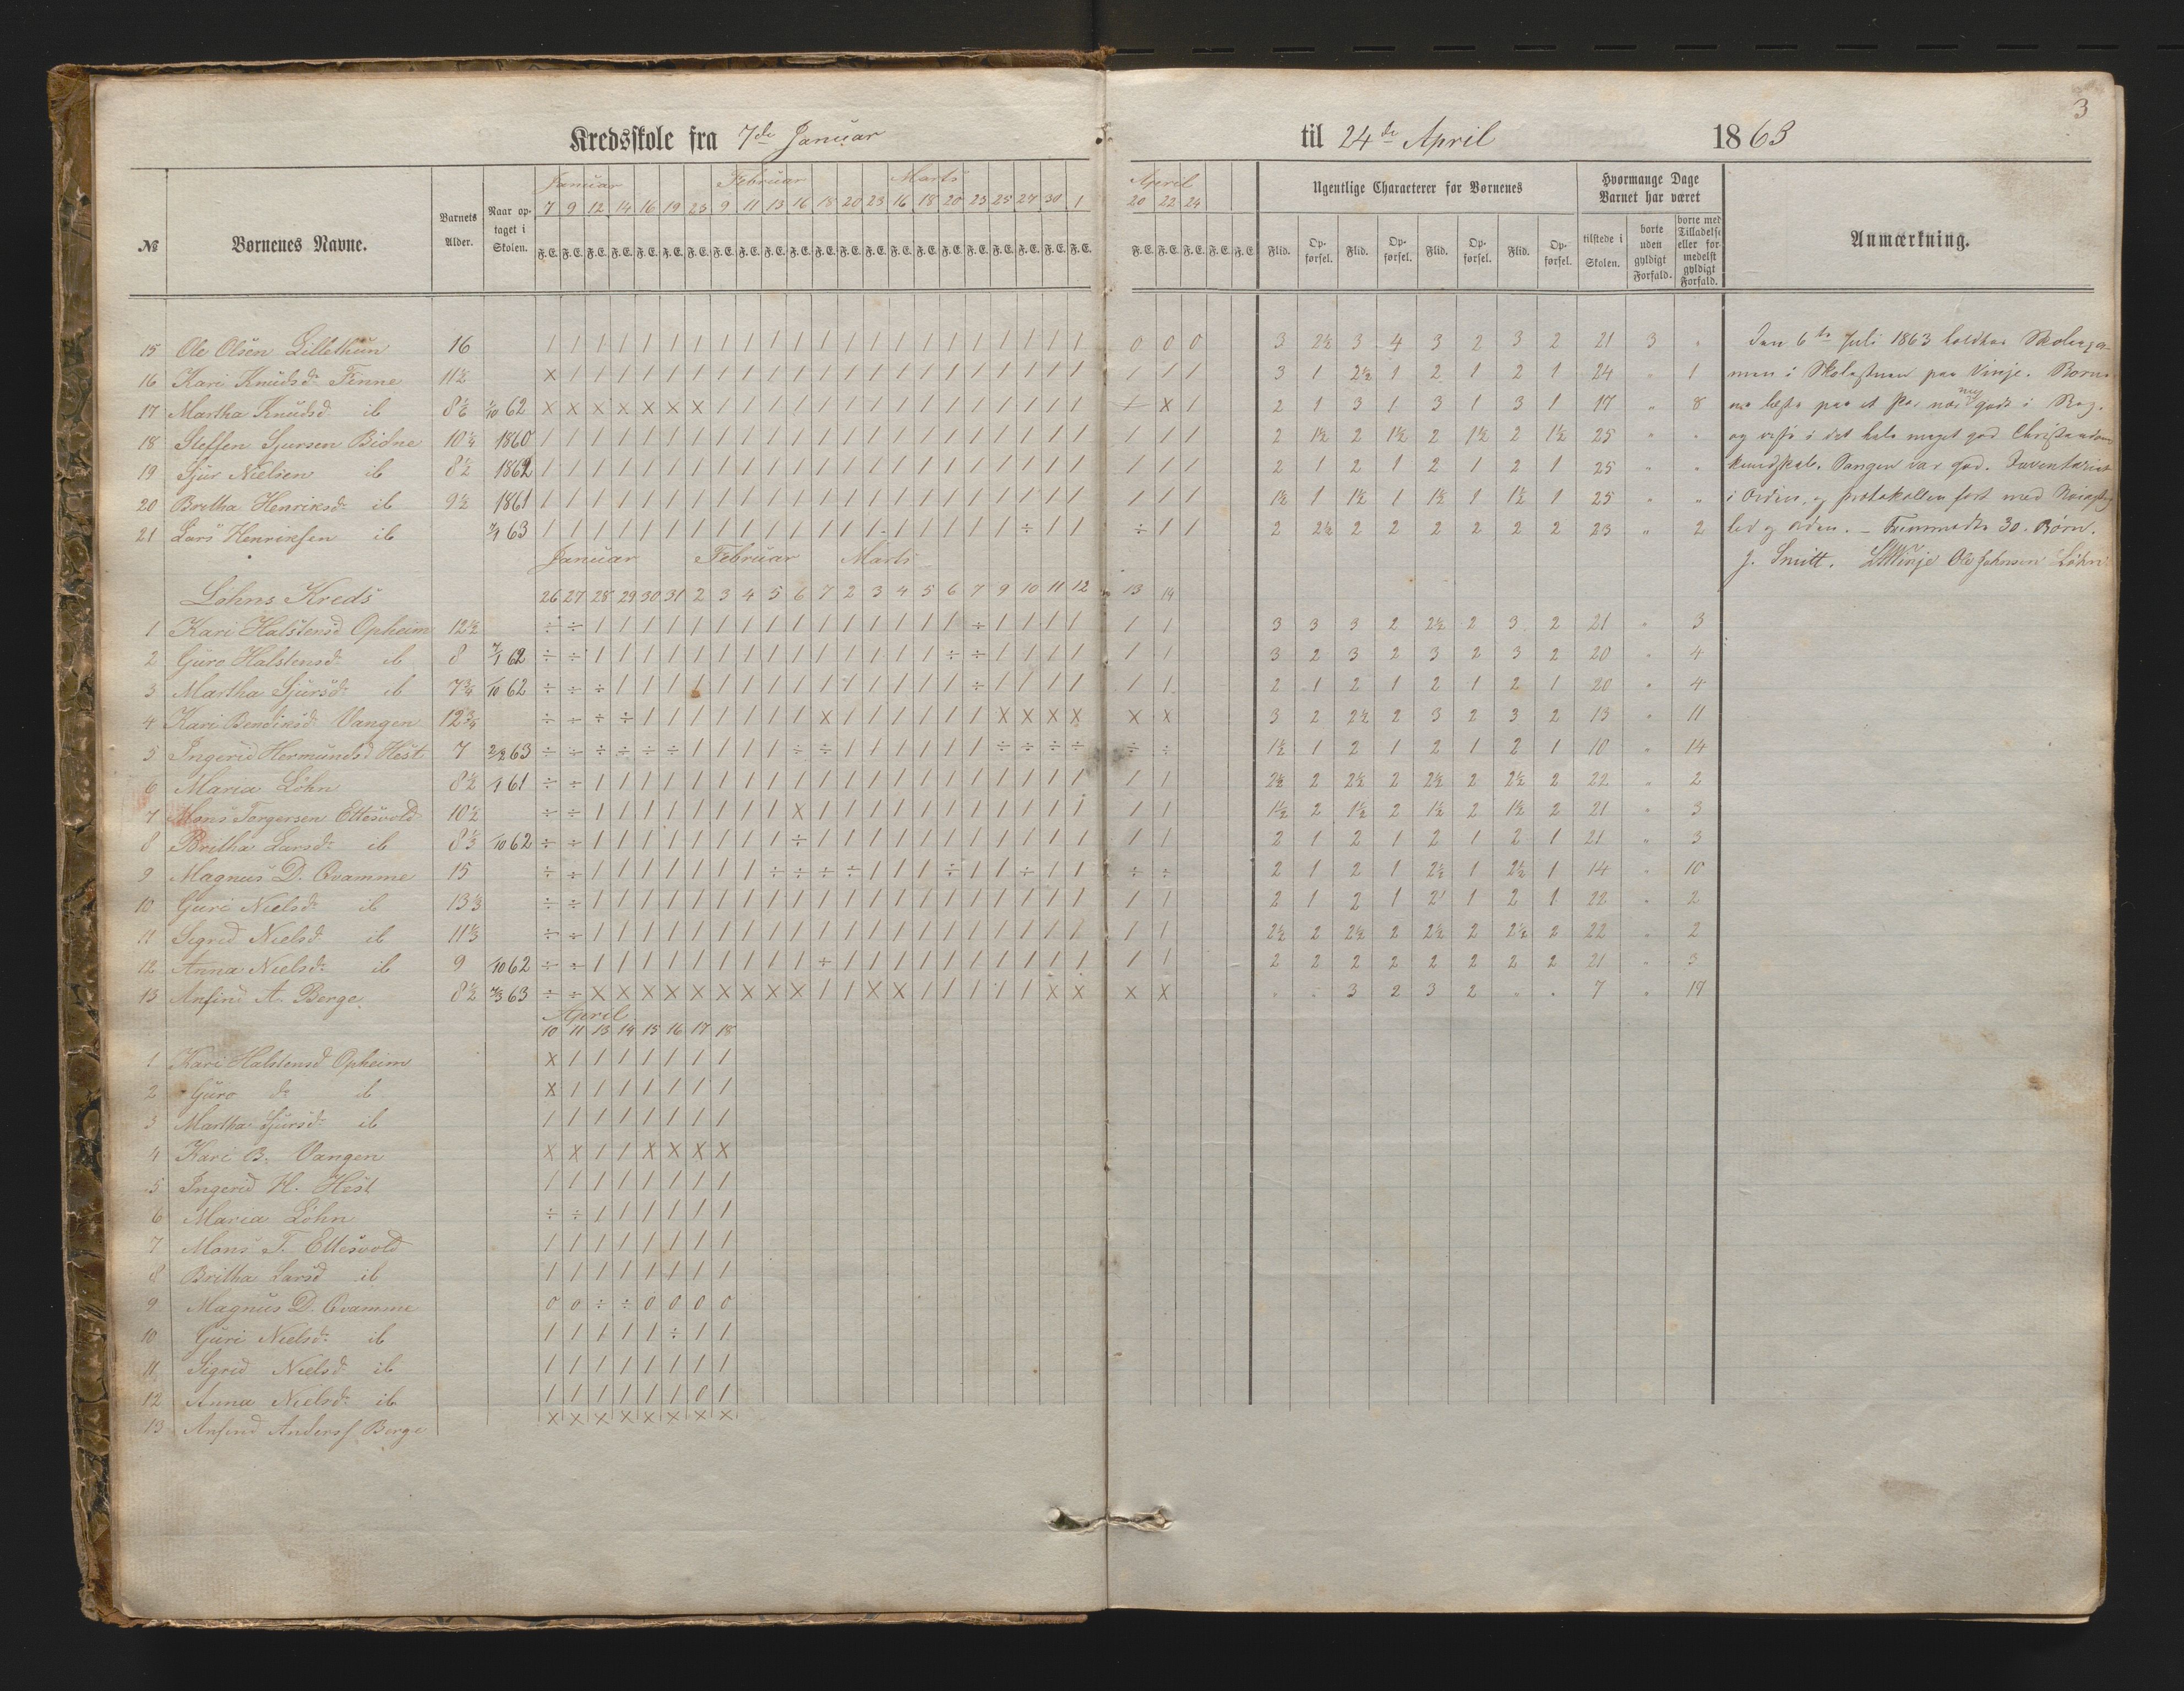 3
Kredsskole fra 7de Januar til 24de April 1863
№ Børnenes Navne. Barnets Alder. Naar optaget i Skolen. Ugentlige Characterer for Børnenes Hvormange Dage Barnet har været Anmærkning.
Januar Februar Marts April
7 9 12 14 16 19 23 9 11 13 16 18 20 23 16 18 20 23 25 27 30 1 20 22 24
F.E. F.E. F.E. F.E. F.E. F.E. F.E. F.E. F.E. F.E. F.E. F.E. F.E. F.E. F.E. F.E. F.E. F.E. F.E. F.E. F.E. F.E. F.E. F.E. F.E. F.E. F.E. Flid. Opførsel. Flid. Opførsel. Flid. Opførsel. Flid. Opførsel. tilstede i Skolen. borte uden gyldigt Forfald. borte med Tilladelse eller formedelst gyldigt Forfald.
15 Ole Olsen Lillethun 16 / / / / / / / / / / / / / / / / / / / / / / 0 0 0 3 2½ 3 4 3 2 3 2 21 3 "
16 Kari Knudsd. Finne 11½ X / / / / / / / / / / / / / / / / / / / / / / / / 3 1 2½ 1 2 1 2 1 24 " 1
17 Martha Knudsd. ib 1/10 62 X X X X X X X / / / / / / / / / / / / / / / / X / 2 1 3 1 3 1 3 1 17 " 8
18 Steffen Sjursen Bidne 10¼ 1860 / / / / / / / / / / / / / / / / / / / / / / / / / 2 1½ 2 1½ 2 1½ 2 1½ 25 " "
19 Sjur Nielsen ib 8½ 1862 / / / / / / / / / / / / / / / / / / / / / / / / / 2 1 2 1 2 1 2 1 25 " "
20 Britha Henriksd. ib 9½ 1861 / / / / / / / / / / / / / / / / / / / / / / / / / 1½ 1 1½ 1 1½ 1 1½ 1 25 " "
21 Lars Henriksen ib 63 / / / / / / / / / / / / / / / / / / / ÷ / / ÷ / / 2 2½ 2 2 2 2 2 2 23 " 2
Den 6te Juli 1863 holdtes Skoleexa-
men i Skolestuen paa Vinje. Børne-
ne læste paa et Par nær meget godt i Bog.
og viste i det hele meget god Christendoms
kundskab. Sangen var god. Inventariet
i Orden, og Protokollen ført med Nøiagtig
hed og Orden. – Fremmødte 30 Børn.
J. Smitt. Vinje Ole Johnsen Løhn
Januar Februar Marts
Løhns Kreds 26 27 28 29 30 31 2 3 4 5 6 7 2 3 4 5 6 7 9 10 11 12 13 14
1 Kari Halstensd Opheim 12½ ÷ ÷ / / / / / / / / / / / / / / / ÷ / / / / / / 3 3 3 2 2½ 2 3 2 21 " 3
2 Guro Halstensd. ib 8 62 ÷ ÷ / / / / / / / / / / / / / / ÷ ÷ / / / / / / 3 2 3 2 3 2 3 2 20 " 4
3 Martha Sjursd. ib 7¾ 1/10 62 ÷ ÷ ÷ / / / / / / / / / / / / / / ÷ / / / / / / 2 1 2 1 2 1 2 1 20 " 4
4 Kari Bendiksd. Vangen ÷ ÷ ÷ ÷ / / / / / / / X / / / / / / X X X X X X 3 2 2½ 2 3 2 3 2 13 " 11
5 Ingerid Hermundsd Hest 7 2/2 63 ÷ ÷ ÷ ÷ ÷ ÷ / / / / ÷ ÷ / / / / / / ÷ ÷ ÷ ÷ ÷ ÷ 1½ 1 2 1 2 1 2 1 10 " 14
6 Maria Løhn 8½ 61 ÷ ÷ / / / / / / / / / / / / / / / / / / / / / / 2½ 2 2½ 2 2½ 2 2½ 2 22 " 2
7 Mons Torgersen Ettesvold 10½ ÷ ÷ / / / / / / / / X / / / / / / / / / / / / / 1½ 2 1½ 2 1½ 2 1½ 2 21 " 3
8 Britha Larsd. ib 8⅓ 1/10 62 ÷ ÷ / / / / / / / / ÷ / / / / / / / / / / / / / 2 1 2 1 2 1 2 1 21 " 3
9 Magnus D. Qvamme 15 ÷ ÷ / / / / / / / ÷ ÷ ÷ ÷ / / / ÷ / / ÷ / / ÷ ÷ 2 1 2 1 2½ 1 2½ 1 14 " 10
10 Guri Nielsd. ib 13⅓ ÷ ÷ / / / / / / / / / / / / / / / / / / / / / / 2 1 2 1 2 1 2 1 22 " 2
11 Sigrid Nielsd. ib 11⅓ ÷ ÷ / / / / / / / / / / / / / / / / / / / / / / 2½ 2 2½ 2 2½ 2 2½ 2 22 " 2
12 Anna Nielsd. ib 9 1/10 62 ÷ ÷ / / / / / / / / / ÷ / / / / / / / / / / / / 2 2 2 2 2 2 2 2 21 " 3
13 Anfind A. Berge 8½ 63 ÷ ÷ X X X X X X X X X / / X X / / / / / X X X X " " 3 2 3 2 " " 7 " 17
April
10 11 13 14 15 16 17 18
1 Kari Halstensd Opheim X / / / / / / /
2 Guro do ib X / / / / / / /
3 Martha Sjursd. ib / / / / / / / /
4 Kari B. Vangen X X / / X X X X
5 Ingerid H. Hest / / / / / / / /
6 Maria Løhn ÷ ÷ / / / / / /
7 Mons T. Ettesvold / / / / / / / /
8 Britha Larsd ib / / / / / / / /
9 Magnus D. Qvamme 0 0 ÷ ÷ 0 0 0 0
10 Guri Nielsd. ib / / / / / ÷ / /
11 Sigrid Nielsd. ib / / / / / / / /
12 Anna Nielsd. ib / / / / / / 0 /
13 Anfind Anders. Berge X X X X X X X X